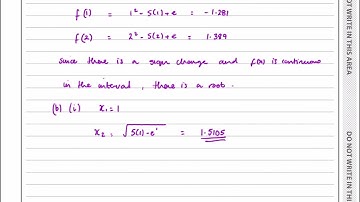 f(1) = 1² - 5(1) + e = - 1.281
f(2) = 2² - 5(2) + e = 1.389
Since there is a sign change and f(x) is continuous
in the interval, there is a root.
(b) (i) x₁ = 1
x₂ = √5(1) - e¹ = 1.5105
NOT WRITE IN THIS AREA
DO NOT WRITE IN THIS